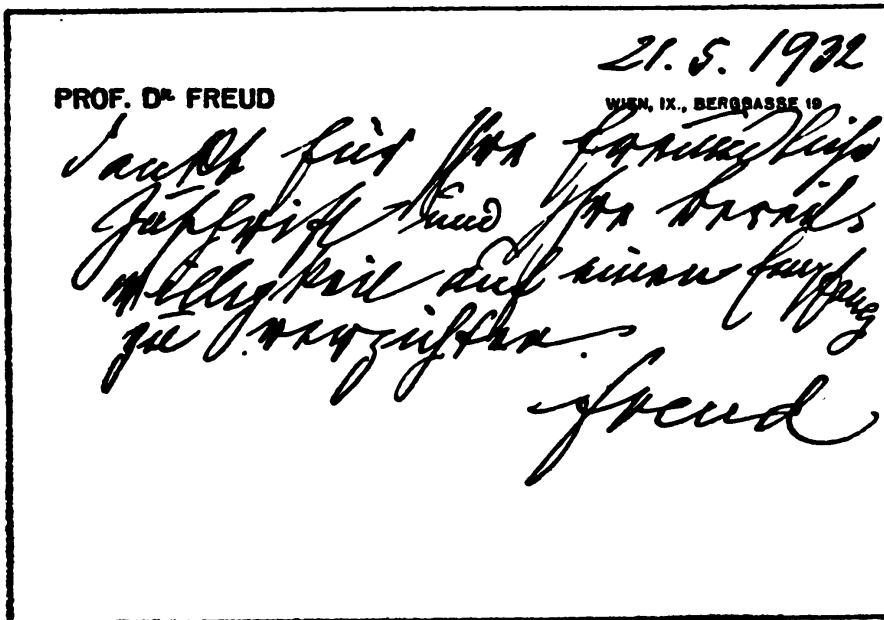 21. 5. 1932
PROF. DR. FREUD
WIEN, IX., BERGGASSE 19
dankt für Ihre freundliche
Zuschrift und Ihre Bereit-
willigkeit auf einen Empfang
zu verzichten.
Freud